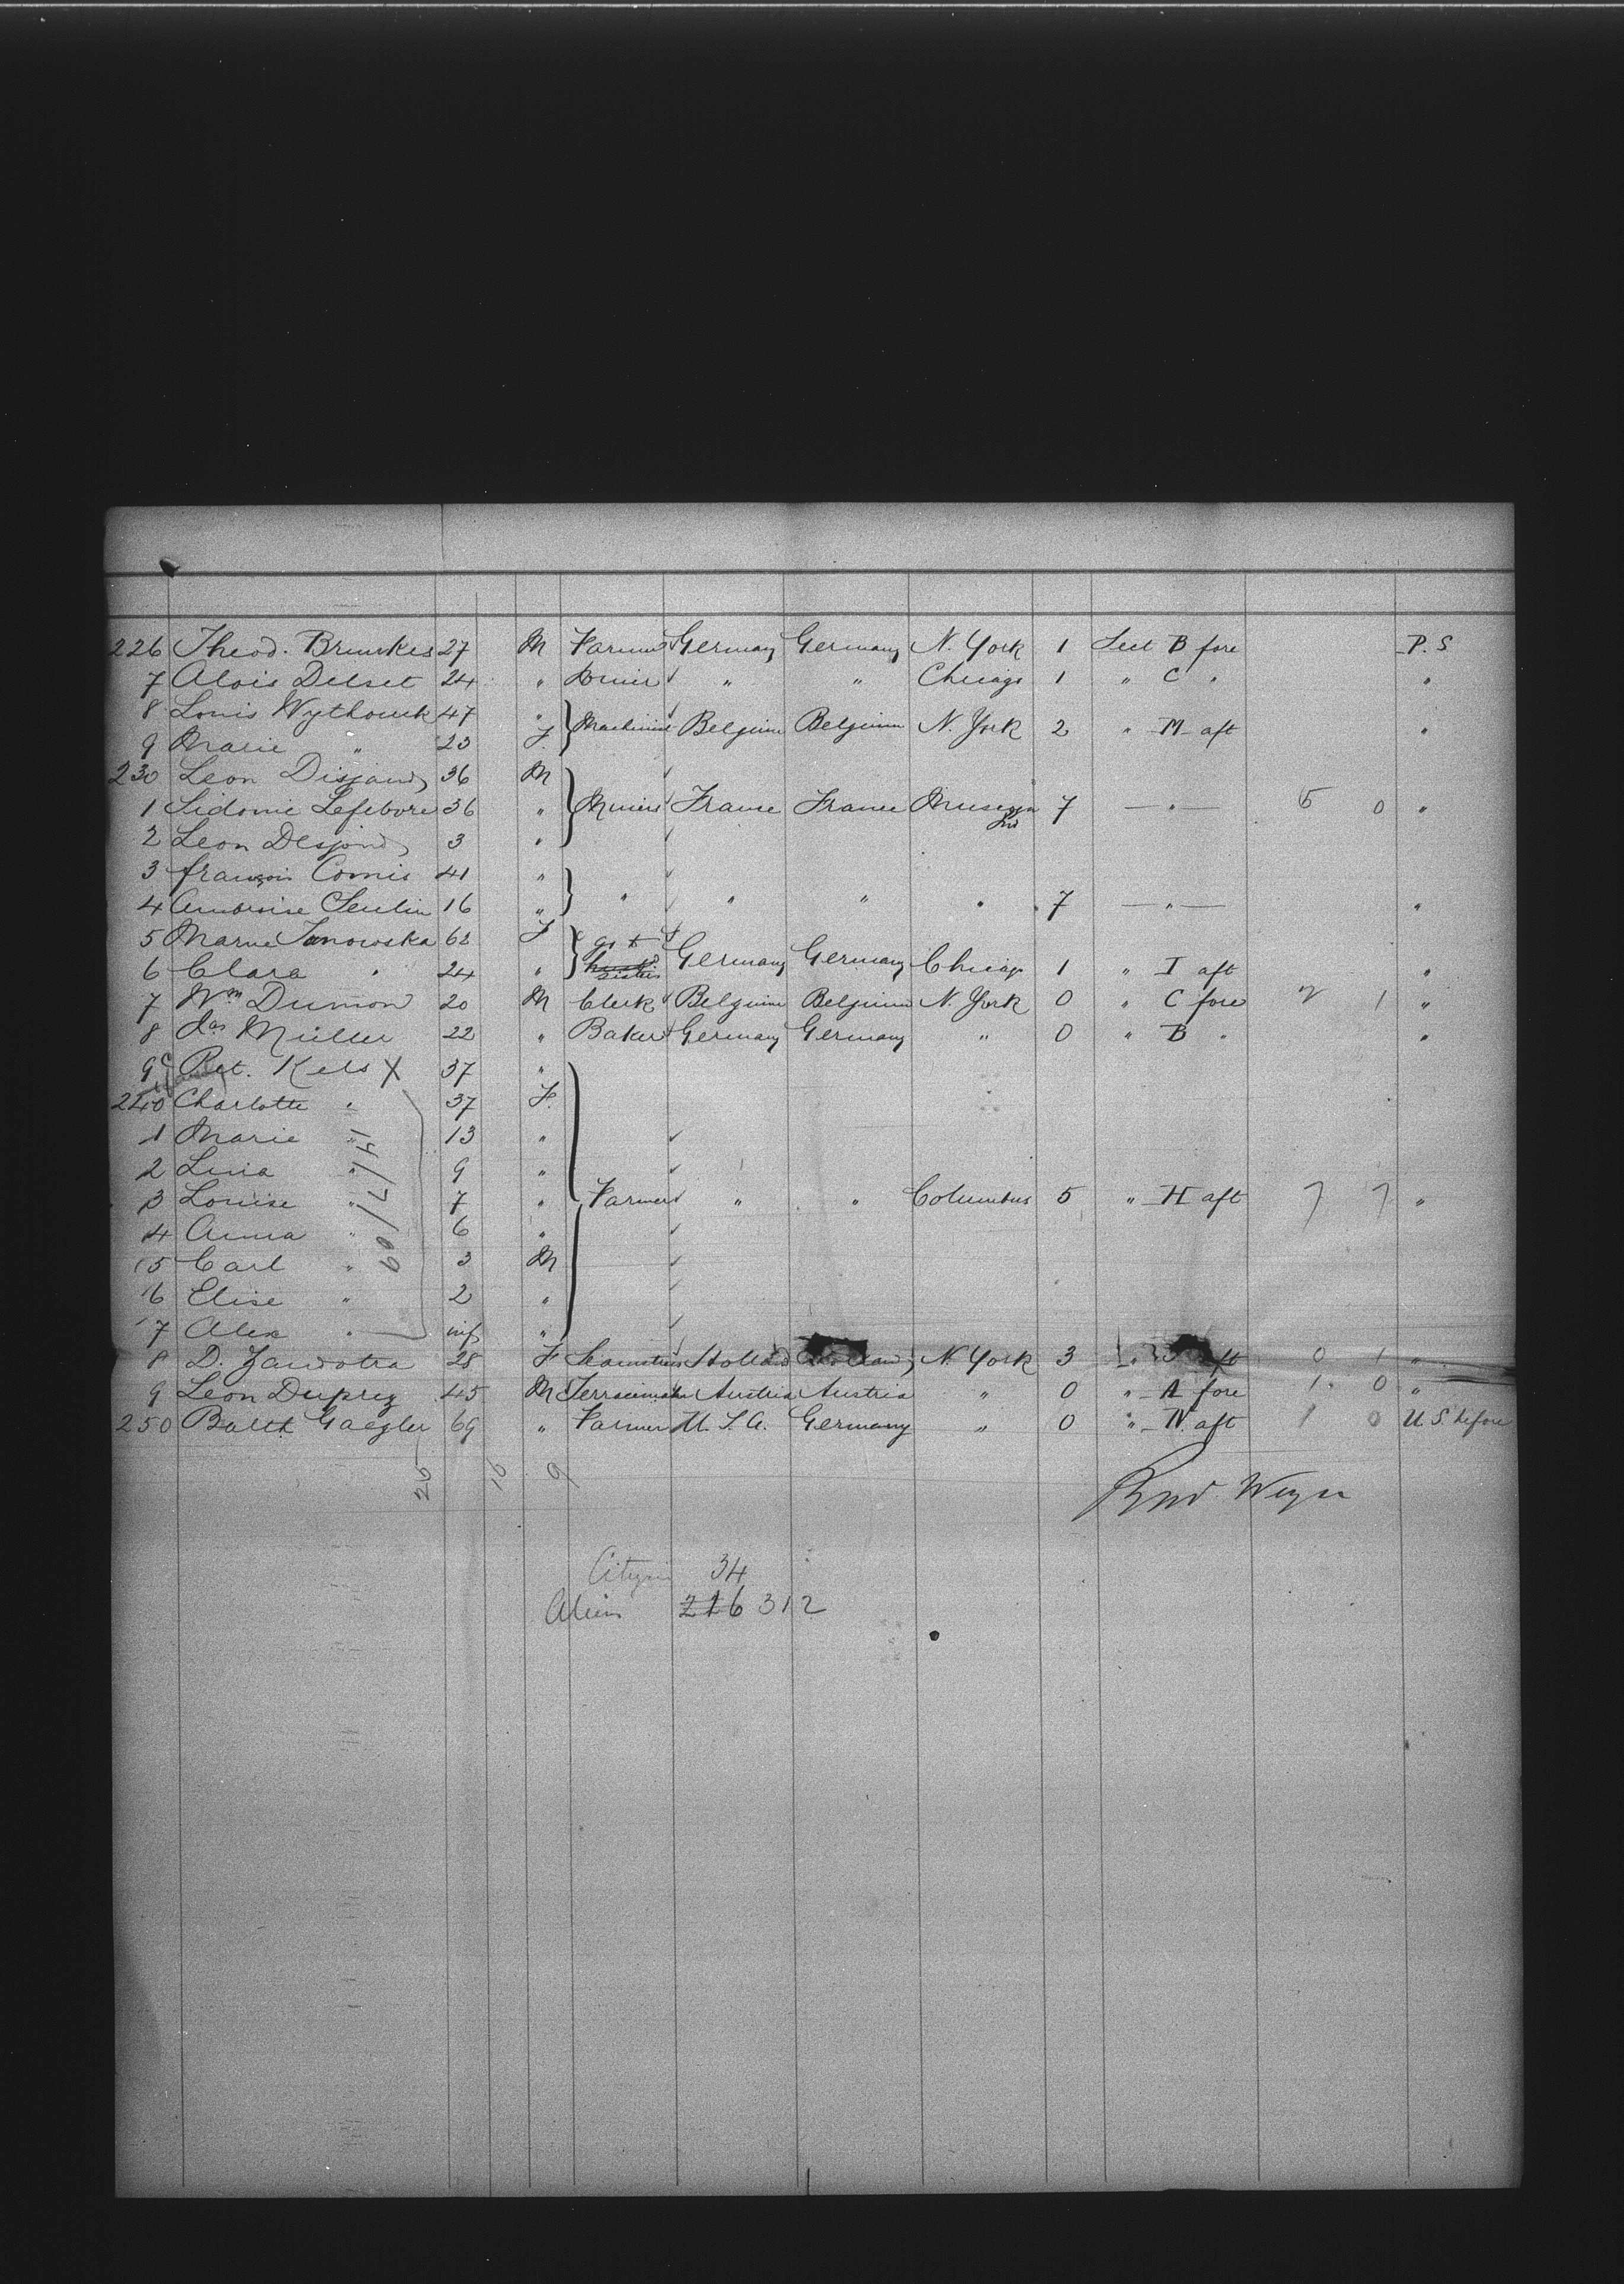 226 Theod. Brunkes 27 M Farmer Germany Germany N. York 1 Sect B fore P. S
7 Alois Delset 24 " " " Chicago 1 " C " "
8 Louis Wythouck 47 " Machinist Belgium Belgium N. York 2 " M aft "
9 Marie " 23 F.
230 Leon Disjand 36 M
1 Sidonie Lefebvre 36 " Miners France France Ind 7 — " — 5 0 "
2 Leon Desjond 3 "
3 françois Cornis 41 "
4 Ambroise Seulin 16 " " " " " 7 — " — "
5 Marie Janowska 62 F
6 Clara " 24 " Germany Germany Chicago 1 " I aft "
7 Wm Dumon 20 M Clerk Belgium Belgium N. York 0 " C fore 2 1 "
8 Jas Müller 22 " Baker Germany Germany " 0 " B " "
9 Pet. Kels X 37 "
240 Charlotte " 37 F.
1 Marie " 13 "
2 Lina " 9 "
3 Louise " 7 " Farmer " " Columbus 5 " H aft 7 7 "
4 Anna " 6 "
5 Carl " 3 M
6 Elise " 2 "
7 Alex " inf "
8 D. Zawotra 28 F Holland Holland N. York 3 " aft 0 1 "
9 Leon Duprez 45 M Austria Austria " 0 " A fore 1 0 "
250 Balth Gaegler 69 " Farmer U. S. A. Germany " 0 " N. aft 1 0 U. S. before
25 16 9
Citizen 34
Aliens 216 312